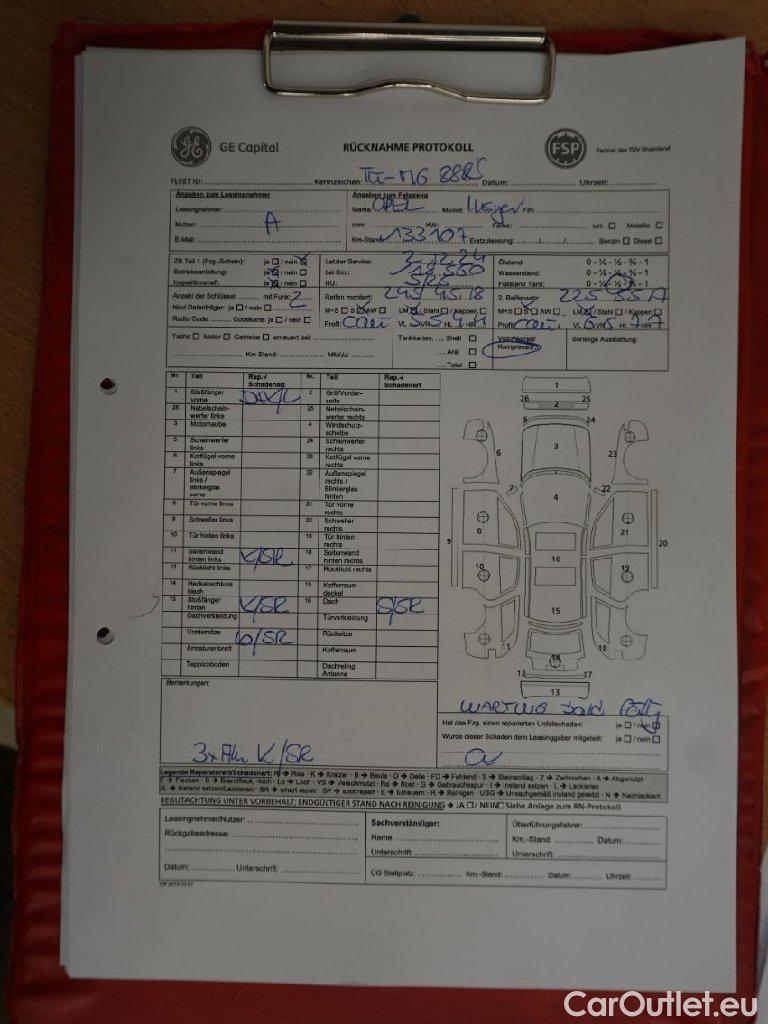 GE Capital RÜCKNAHME PROTOKOLL FSP Partner des TÜV Rheinland
FLEET ID: Kennzeichen: Datum: Uhrzeit:
Angaben zum Leasingnehmer
Leasingnehmer:
Nutzer: A
E-Mail:
Angaben zum Fahrzeug
Marke: OPEL Modell: FIN:
ccm: KW: Farbe: Uni Metallic
Km-Stand: 133107 Erstzulassung: Benzin Diesel
ZB Teil 1 (Fzg.-Schein): ja / nein
Betriebsanleitung: ja / nein
Inspektionsheft: ja / nein
Letzter Service:
bei Km.:
HU:
Ölstand: 0 - ¼ - ½ - ¾ - 1
Wasserstand: 0 - ¼ - ½ - ¾ - 1
Füllstand Tank: 0 - ¼ - ½ - ¾ - 1
Anzahl der Schlüssel mit Funk: 2
Navi Datenträger: ja / nein
Radio Code: Codekarte: ja / nein
Reifen montiert: 245 45 18
M+S SO AW LM / Stahl / Kappen
Profil VL VR HL HR
2. Reifensatz: 225 55 17
M+S SO AW LM / Stahl / Kappen
Profil VL VR HL HR
Tacho Motor Getriebe erneuert bei:
Km Stand: MM/JJ:
Tankkarten: Shell
Aral
Total
Kompressor
Sonstige Ausstattung:
Nr. Teil Rep.-/ Schadenart Nr. Teil Rep.-/ Schadenart
1 Stoßfänger vorne
2 Grill Vorderseite
26 Nebelscheinwerfer links
25 Nebelscheinwerfer rechts
3 Motorhaube
4 Windschutzscheibe
5 Scheinwerfer links
24 Scheinwerfer rechts
6 Kotflügel vorne links
23 Kotflügel vorne rechts
7 Außenspiegel links / Blinkerglas vorne
22 Außenspiegel rechts / Blinkerglas hinten
8 Tür vorne links
21 Tür vorne rechts
9 Schweller links
20 Schweller rechts
10 Tür hinten links
19 Tür hinten rechts
11 Seitenwand hinten links K/SR
18 Seitenwand hinten rechts
12 Rücklicht links
17 Rücklicht rechts
14 Heckabschlussblech
15 Kofferraumdeckel
13 Stoßfänger hinten K/SR
16 Dach S/SR
Dachverkleidung
Türverkleidung
Vordersitze
Rücksitze
Armaturenbrett
Kofferraum
Teppichboden
Dachreling Antenne
1
26 25
2
5 24
6 3 23
7 22
4
8 21
9 20
16
10 19
15
11 18
14
12 17
13
Bemerkungen:
K/SR
Hat das Fzg. einen reparierten Unfallschaden: ja / nein
Wurde dieser Schaden dem Leasinggeber mitgeteilt: ja / nein
Legende Reparaturart/Schadenart: RI → Riss · K → Kratzer · B → Beule · D → Delle · FD → Fehlend · S → Steinschlag · Z → Zerbrochen · A → Abgenutzt
BEGUTACHTUNG UNTER VORBEHALT; ENDGÜLTIGER STAND NACH REINIGUNG → JA / NEIN Siehe Anlage zum RN-Protokoll
Leasingnehmer/Nutzer:
Rückgabeadresse:
Datum: Unterschrift:
Sachverständiger:
Name:
Unterschrift:
Überführungsfahrer:
Km.-Stand: Datum:
Unterschrift:
CG Stellplatz: Km.-Stand: Datum: Uhrzeit:
CarOutlet.eu